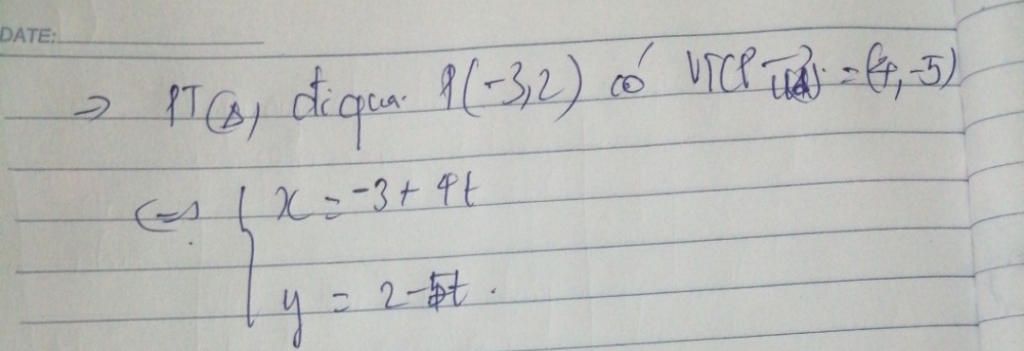 DATE:
⇒ PT(Δ) đi qua P(-3,2) có VTCP = (4,-5)
⇔ { x = -3 + 4t
y = 2 - 5t.